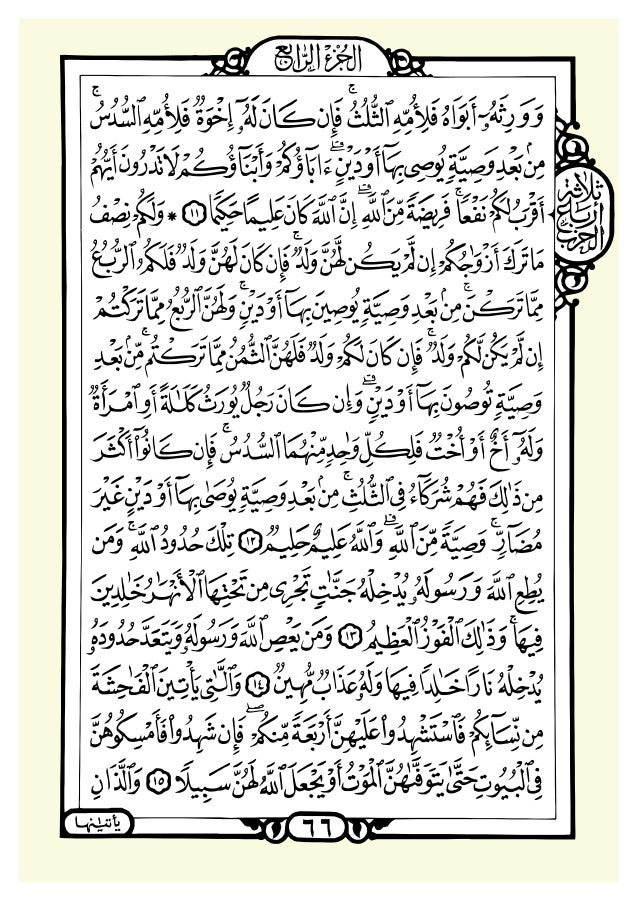 الجزء الرابع
وَوَرِثَهُۥٓ أَبَوَاهُ فَلِأُمِّهِ ٱلثُّلُثُ ۚ فَإِن كَانَ لَهُۥٓ إِخْوَةٌ فَلِأُمِّهِ ٱلسُّدُسُ ۚ
مِنۢ بَعْدِ وَصِيَّةٍ يُوصِى بِهَآ أَوْ دَيْنٍ ۗ ءَابَآؤُكُمْ وَأَبْنَآؤُكُمْ لَا تَدْرُونَ أَيُّهُمْ
أَقْرَبُ لَكُمْ نَفْعًا ۚ فَرِيضَةً مِّنَ ٱللَّهِ ۗ إِنَّ ٱللَّهَ كَانَ عَلِيمًا حَكِيمًا ١١ * وَلَكُمْ نِصْفُ
مَا تَرَكَ أَزْوَٰجُكُمْ إِن لَّمْ يَكُن لَّهُنَّ وَلَدٌ ۚ فَإِن كَانَ لَهُنَّ وَلَدٌ فَلَكُمُ ٱلرُّبُعُ
مِمَّا تَرَكْنَ ۚ مِنۢ بَعْدِ وَصِيَّةٍ يُوصِينَ بِهَآ أَوْ دَيْنٍ ۚ وَلَهُنَّ ٱلرُّبُعُ مِمَّا تَرَكْتُمْ
إِن لَّمْ يَكُن لَّكُمْ وَلَدٌ ۚ فَإِن كَانَ لَكُمْ وَلَدٌ فَلَهُنَّ ٱلثُّمُنُ مِمَّا تَرَكْتُم ۚ مِّنۢ بَعْدِ
وَصِيَّةٍ تُوصُونَ بِهَآ أَوْ دَيْنٍ ۗ وَإِن كَانَ رَجُلٌ يُورَثُ كَلَٰلَةً أَوِ ٱمْرَأَةٌ
وَلَهُۥٓ أَخٌ أَوْ أُخْتٌ فَلِكُلِّ وَٰحِدٍ مِّنْهُمَا ٱلسُّدُسُ ۚ فَإِن كَانُوٓا۟ أَكْثَرَ
مِن ذَٰلِكَ فَهُمْ شُرَكَآءُ فِى ٱلثُّلُثِ ۚ مِنۢ بَعْدِ وَصِيَّةٍ يُوصَىٰ بِهَآ أَوْ دَيْنٍ غَيْرَ
مُضَآرٍّ ۚ وَصِيَّةً مِّنَ ٱللَّهِ ۗ وَٱللَّهُ عَلِيمٌ حَلِيمٌ ١٢ تِلْكَ حُدُودُ ٱللَّهِ ۚ وَمَن
يُطِعِ ٱللَّهَ وَرَسُولَهُۥ يُدْخِلْهُ جَنَّٰتٍ تَجْرِى مِن تَحْتِهَا ٱلْأَنْهَٰرُ خَٰلِدِينَ
فِيهَا ۚ وَذَٰلِكَ ٱلْفَوْزُ ٱلْعَظِيمُ ١٣ وَمَن يَعْصِ ٱللَّهَ وَرَسُولَهُۥ وَيَتَعَدَّ حُدُودَهُۥ
يُدْخِلْهُ نَارًا خَٰلِدًا فِيهَا وَلَهُۥ عَذَابٌ مُّهِينٌ ١٤ وَٱلَّٰتِى يَأْتِينَ ٱلْفَٰحِشَةَ
مِن نِّسَآئِكُمْ فَٱسْتَشْهِدُوا۟ عَلَيْهِنَّ أَرْبَعَةً مِّنكُمْ ۖ فَإِن شَهِدُوا۟ فَأَمْسِكُوهُنَّ
فِى ٱلْبُيُوتِ حَتَّىٰ يَتَوَفَّىٰهُنَّ ٱلْمَوْتُ أَوْ يَجْعَلَ ٱللَّهُ لَهُنَّ سَبِيلًا ١٥ وَٱلَّذَانِ
ثلاثة
أرباع
الحزب
يأتيٰنها
٦٦